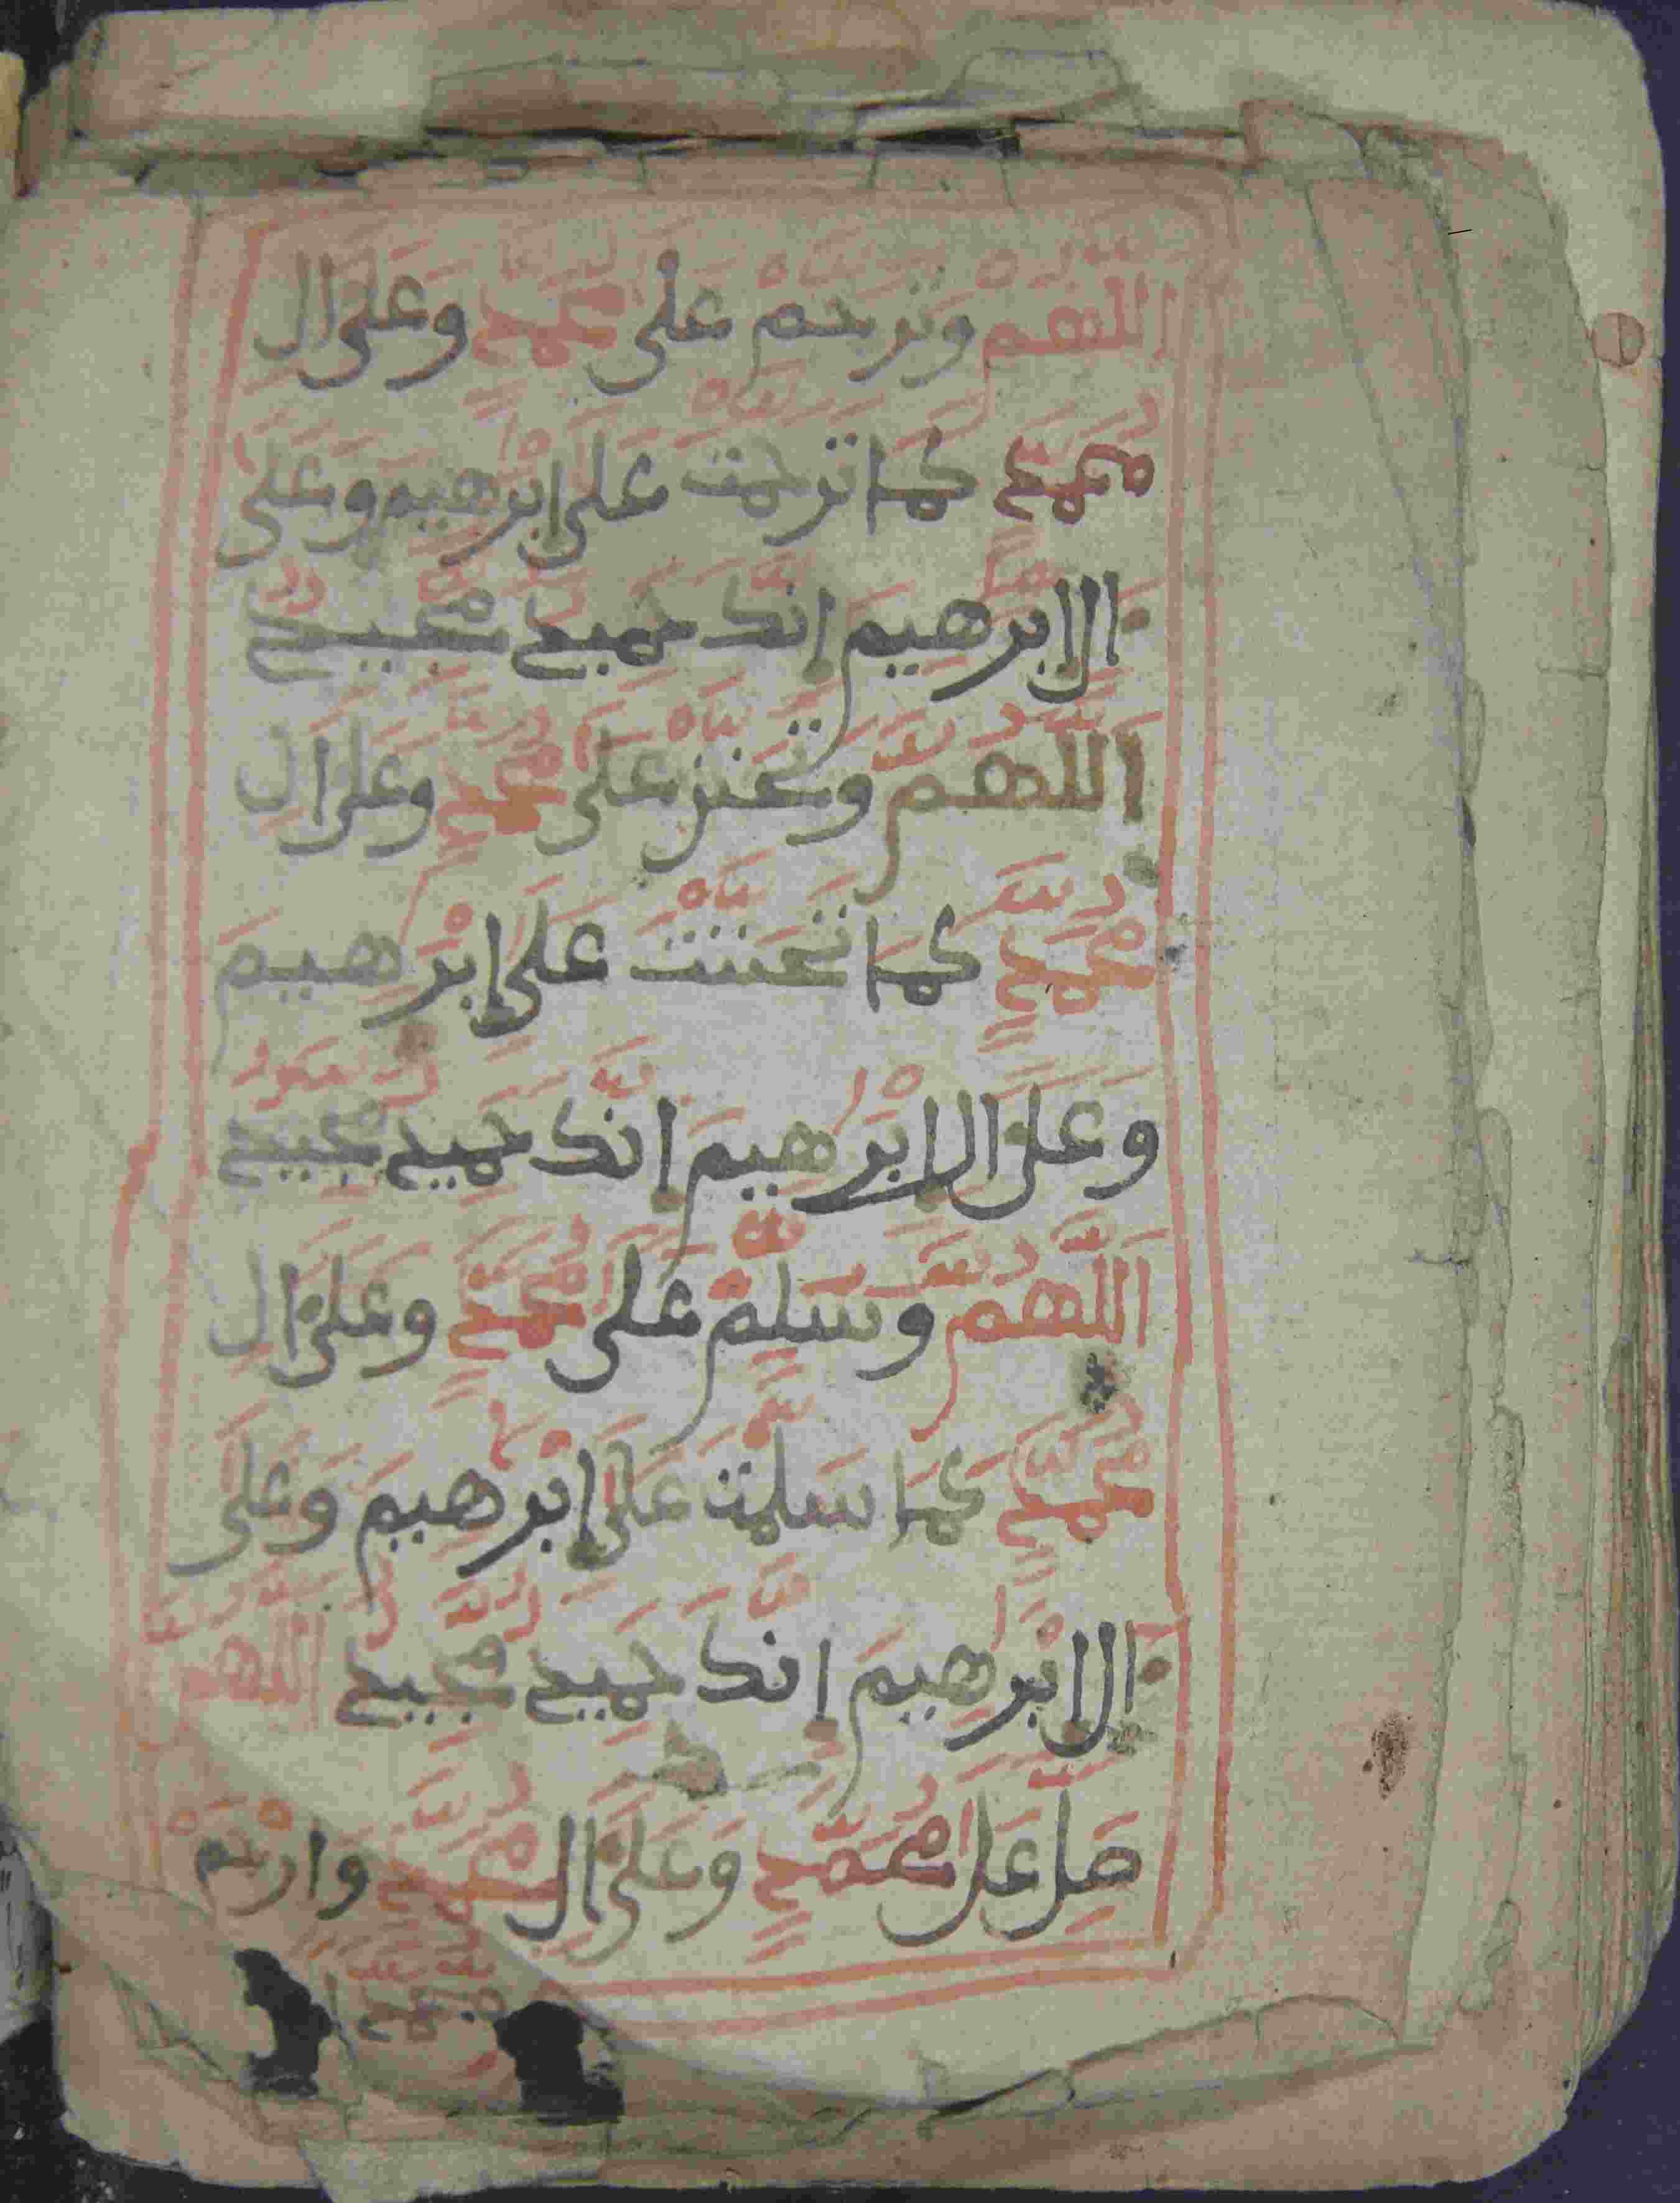 اللهم وترحم على محمد وعلى ال
محمد كما ترحمت على ابرهيم وعلى
ال ابرهيم انك حميد مجيد
اللهم وتحنن على محمد وعلى ال
محمد كما تحننت على إبرهيم
وعلى ال ابرهيم انك حميد مجيد
اللهم وسلم على محمد وعلى ال
محمد كما سلمت على إبرهيم وعلى
ال ابرهيم انك حميد مجيد اللهم
صل على محمد وعلى ال محمد وارحم
محمدا